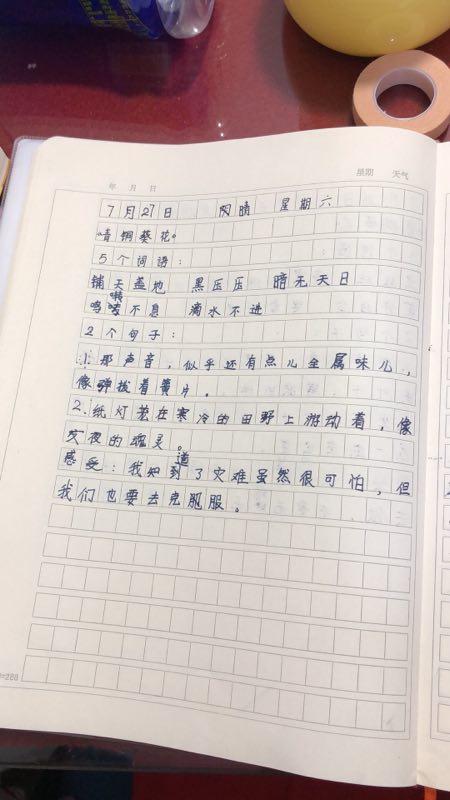 年 月 日 星期 天气
7月27日 阴晴 星期六
《青铜葵花》
5个词语：
铺天盖地 黑压压 暗无天日
呜咽不息 滴水不进
2个句子：
1.那声音，似乎还有点儿金属味儿，
像弹拨着簧片。
2.纸灯笼在寒冷的田野上游动着，像
灾夜的魂灵。
感受：我知道到了灾难虽然很可怕，但
我们也要去克服服。